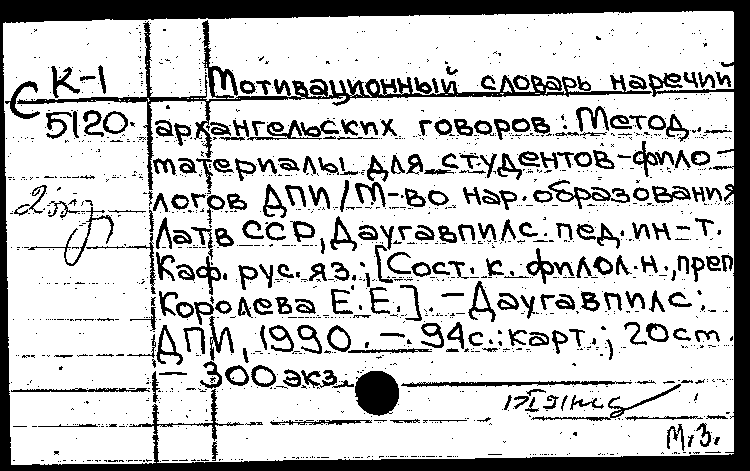 С К-1
5120.
2 экз,
Мотивационный словарь наречий
архангельских говоров: Метод.
материалы для студентов-фило-
логов ДПИ/М-во нар. образования
Латв ССР, Даугавпилс. пед. ин-т.
Каф. рус. яз.; [Сост. к. филол. н., преп
Королева Е.Е.]. - Даугавпилс:
ДПИ, 1990. - 94с.: карт.; 20 см.
- 300 экз.
М.З.